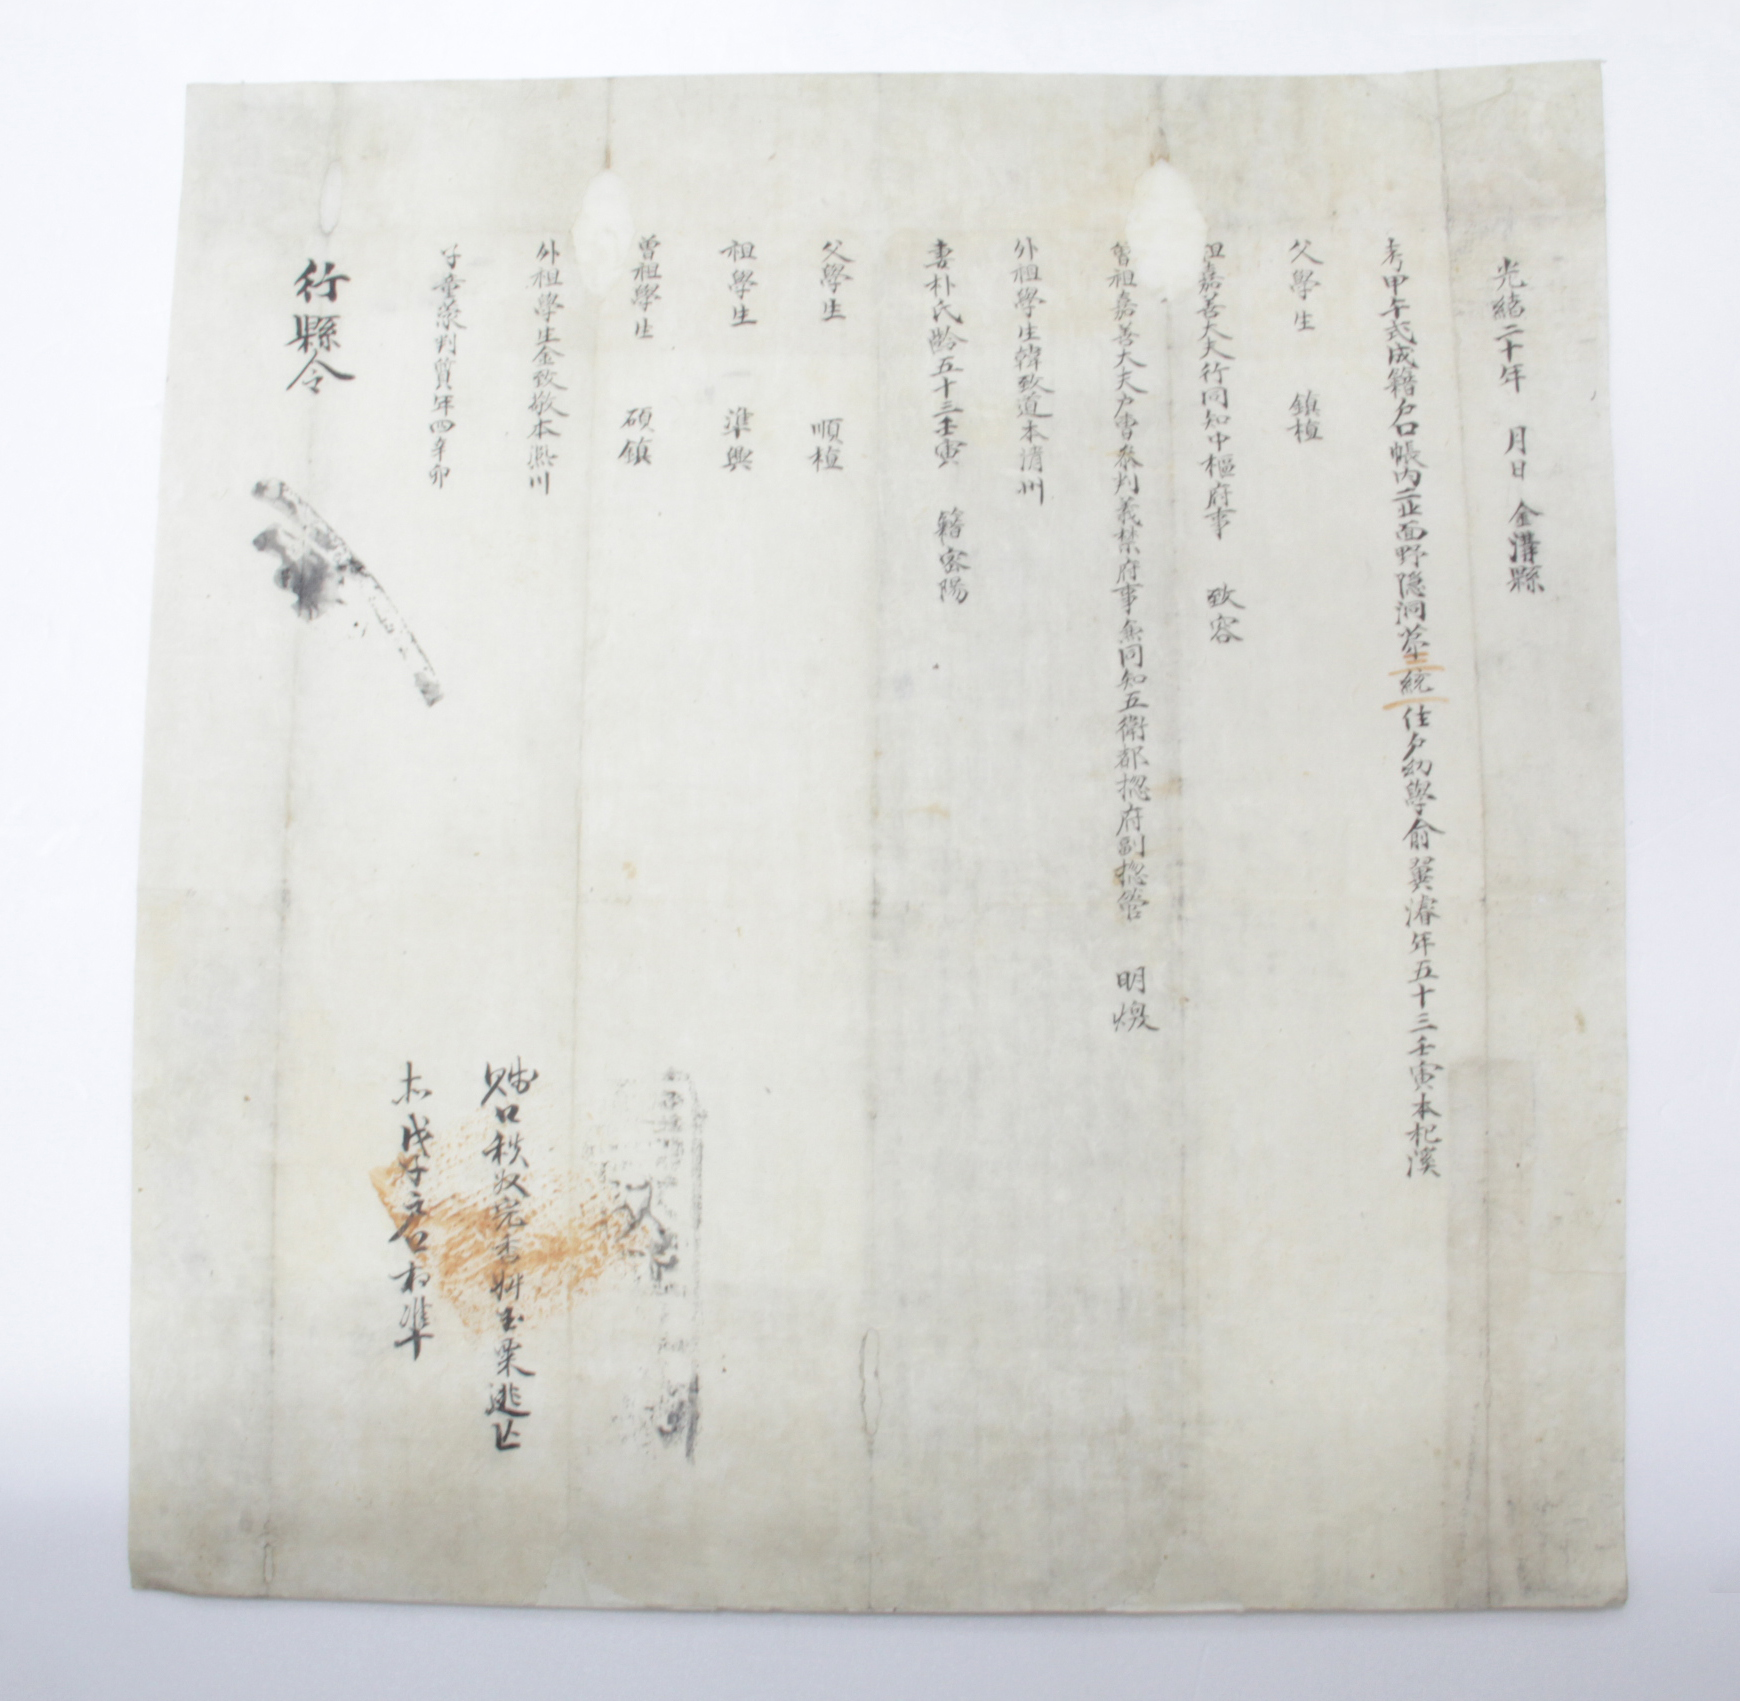 光緖二十年 月日 金溝縣
考甲午式成籍戶口帳內二北面野隱洞第三統一住戶幼學俞箕濬年五十三壬寅本杞溪
父學生 鎭植
祖嘉善大夫行同知中樞府事 致容
曾祖嘉善大夫戶曹參判義禁府事兼同知五衛都摠府副摠管 明煥
外祖學生韓致道本淸州
妻朴氏齡五十三壬寅 籍密陽
父學生 順植
祖學生 準興
曾祖學生 碩鎭
外祖學生金致敬本
子童蒙 年四辛卯
賤口秩奴完 婢玉業逃亡
戊子戶口相準
行縣令